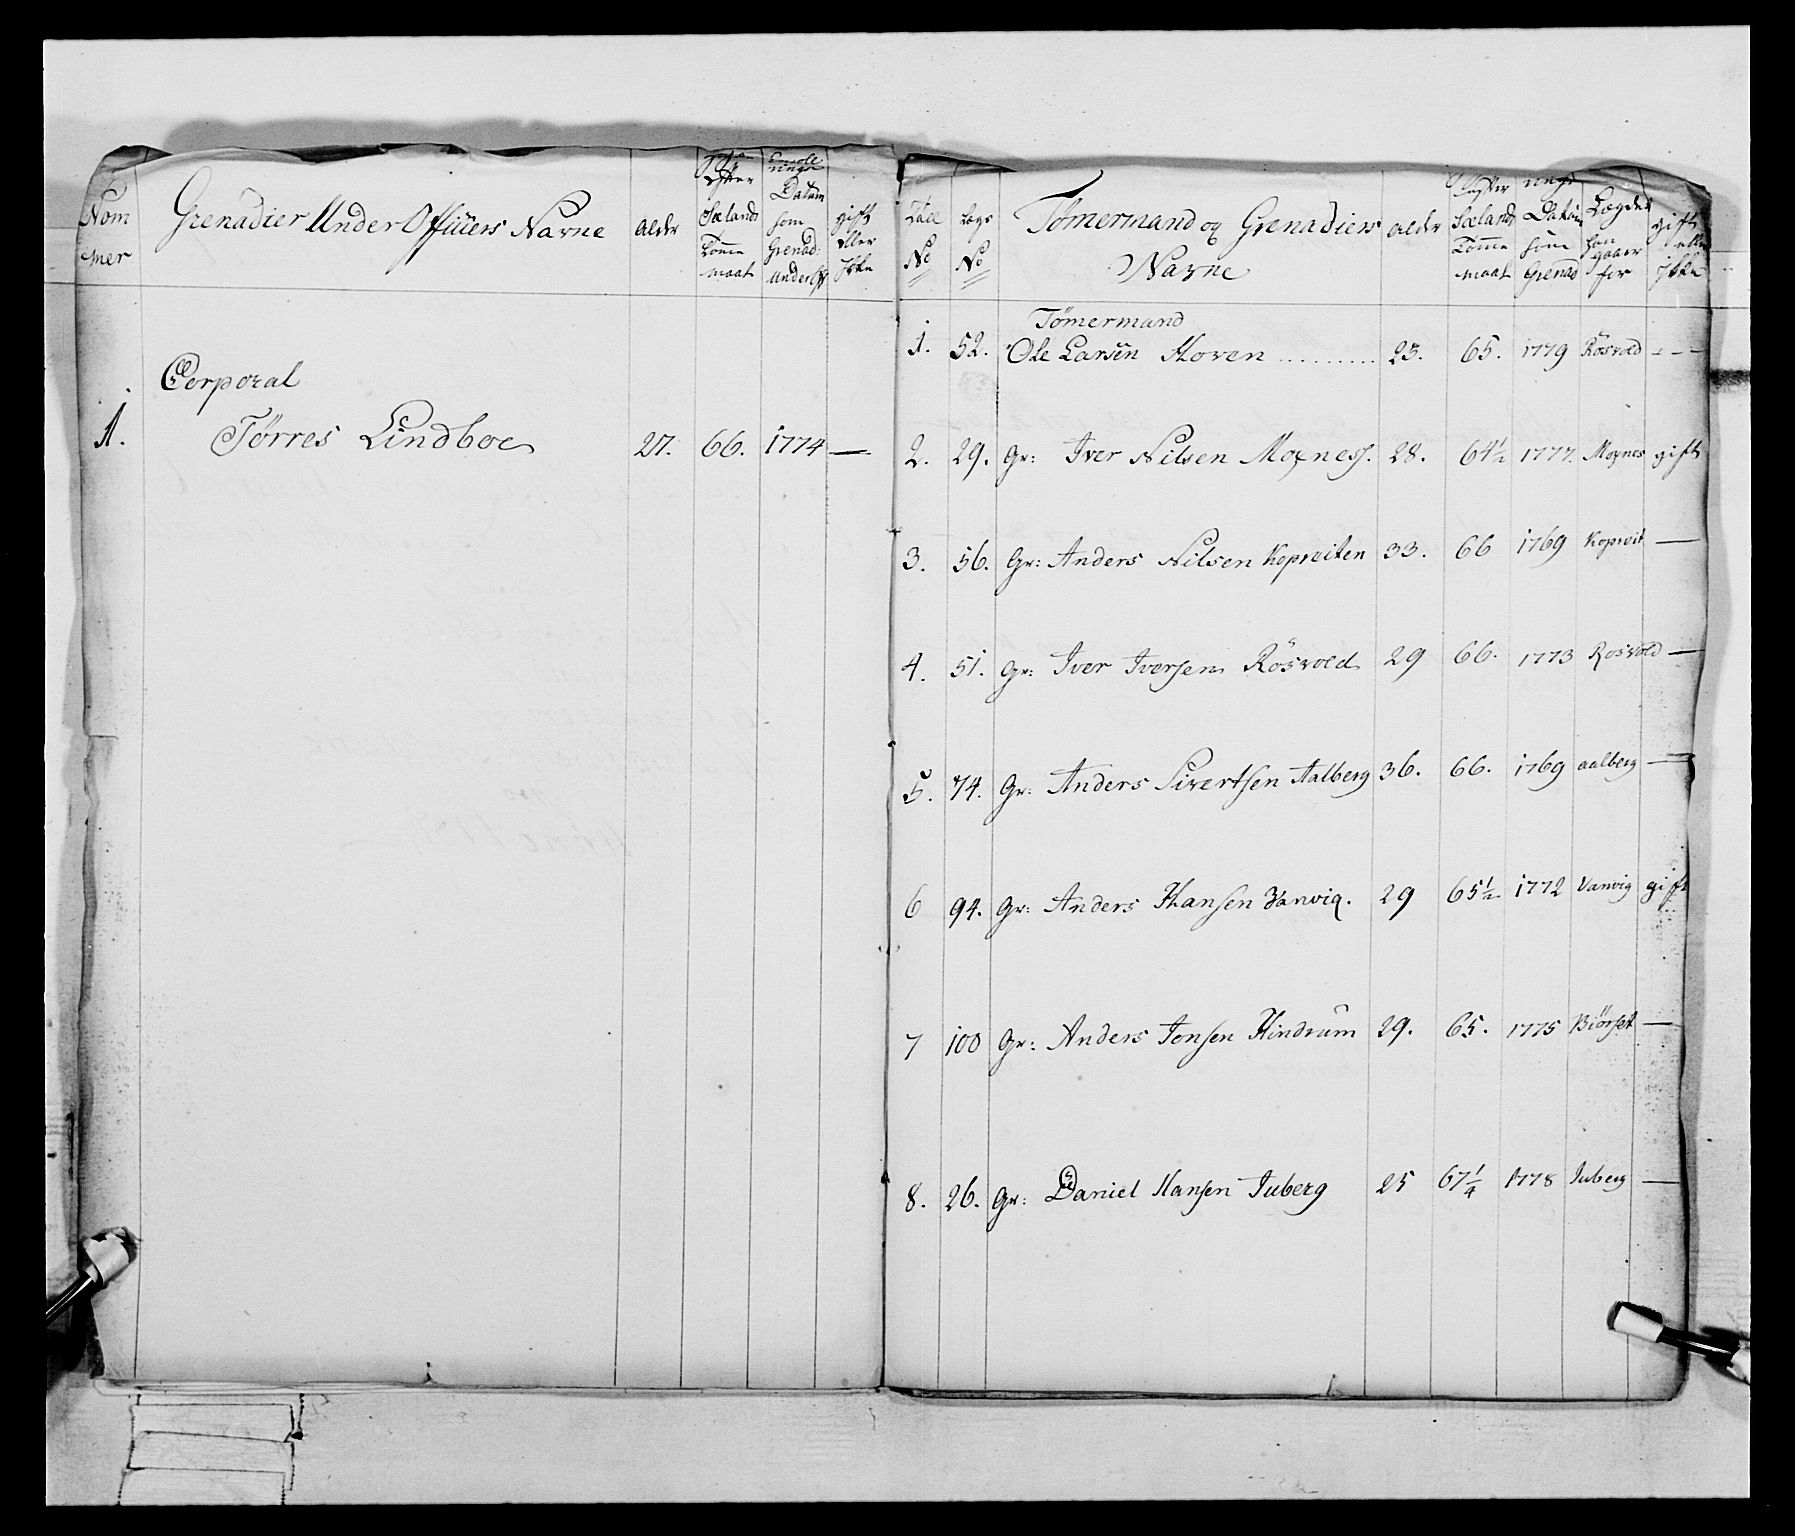 Nom
mer
Grenadier Under Officiers Navne
alder
efter
Sælands
Tomme
maat
Datum
som
Grenad:
underoff
gift
eller
Ikke
Corporal
1. Tørres Lindboe 27. 66. 1774 —
Tall
No
Legs
No
Tømermand og Grenadiers
Navne
alder
efter
Sælands
Tomme
maat
Datum
som
Grenad
Lægder
han
gaaer
for
gift
eller
ikke
Tømermand
1. 52. Ole Larsen Hoven ......... 23. 65. 1779 Rösvold - - -
2. 29. Gr: Iver Nilsen Moxness. 28. 64½ 1777. Moxnes gift
3. 56. Gr: Anders Nilsen Kopreiten 33. 66 1769 Kopreit —
4. 51. Gr: Iver Iversen Rösvold 29 66. 1773 Rosvold —
5. 74. Gr: Anders Sivertsen Aalberg 36. 66. 1769 aalberg —
6 94. Gr: Anders Hansen Vanvig. 29 65½ 1772 Vanvig gift
7 100 Gr: Anders Jonsen Hindrum 29. 65. 1775 Biörset —
8. 26. Gr: Daniel Hansen Juberg 25 67¼ 1778 Juberg —